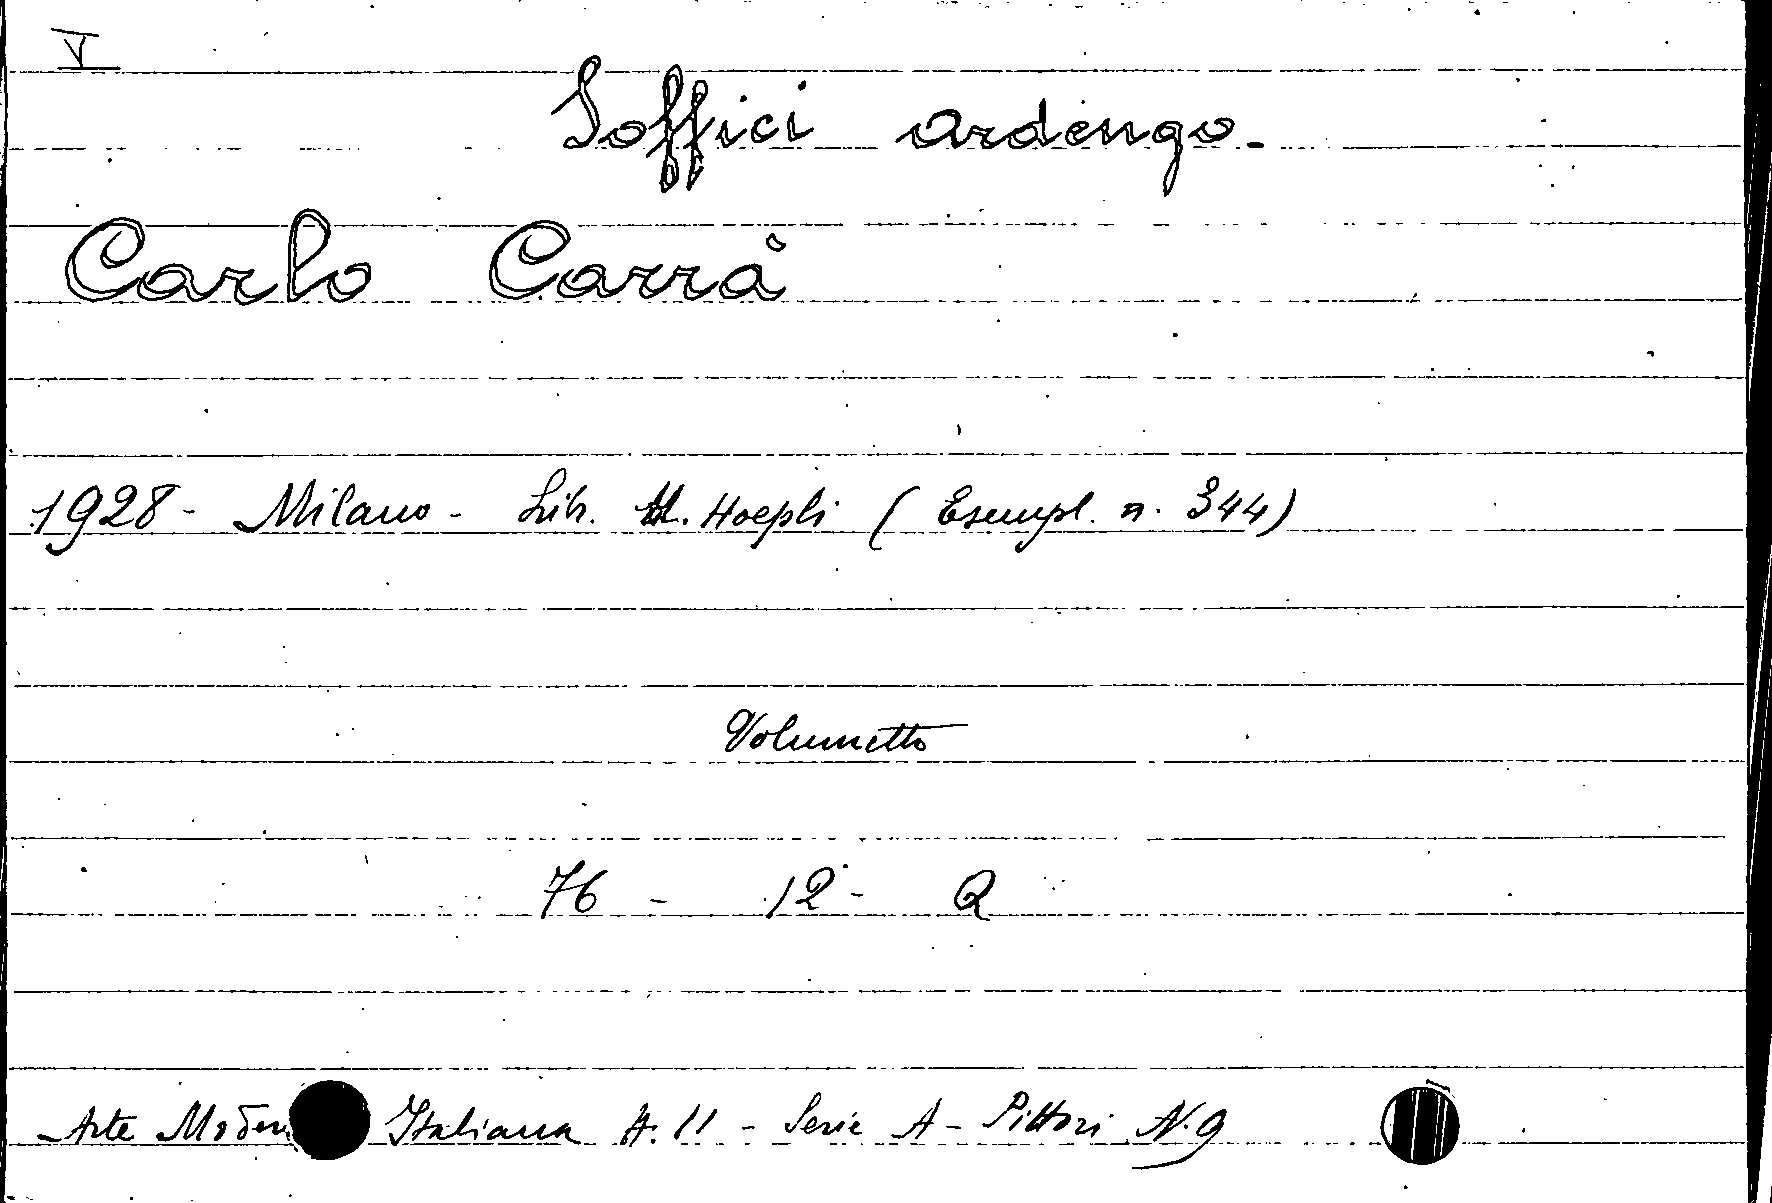 V
Soffici Ardengo.
Carlo Carrà
1928 - Milano - Lib. U. Hoepli (Esempl. n. 344)
Volumetto
76 - 12 - Q
Arte Moder Italiana A. 11 - Serie A - Pittori N. 9